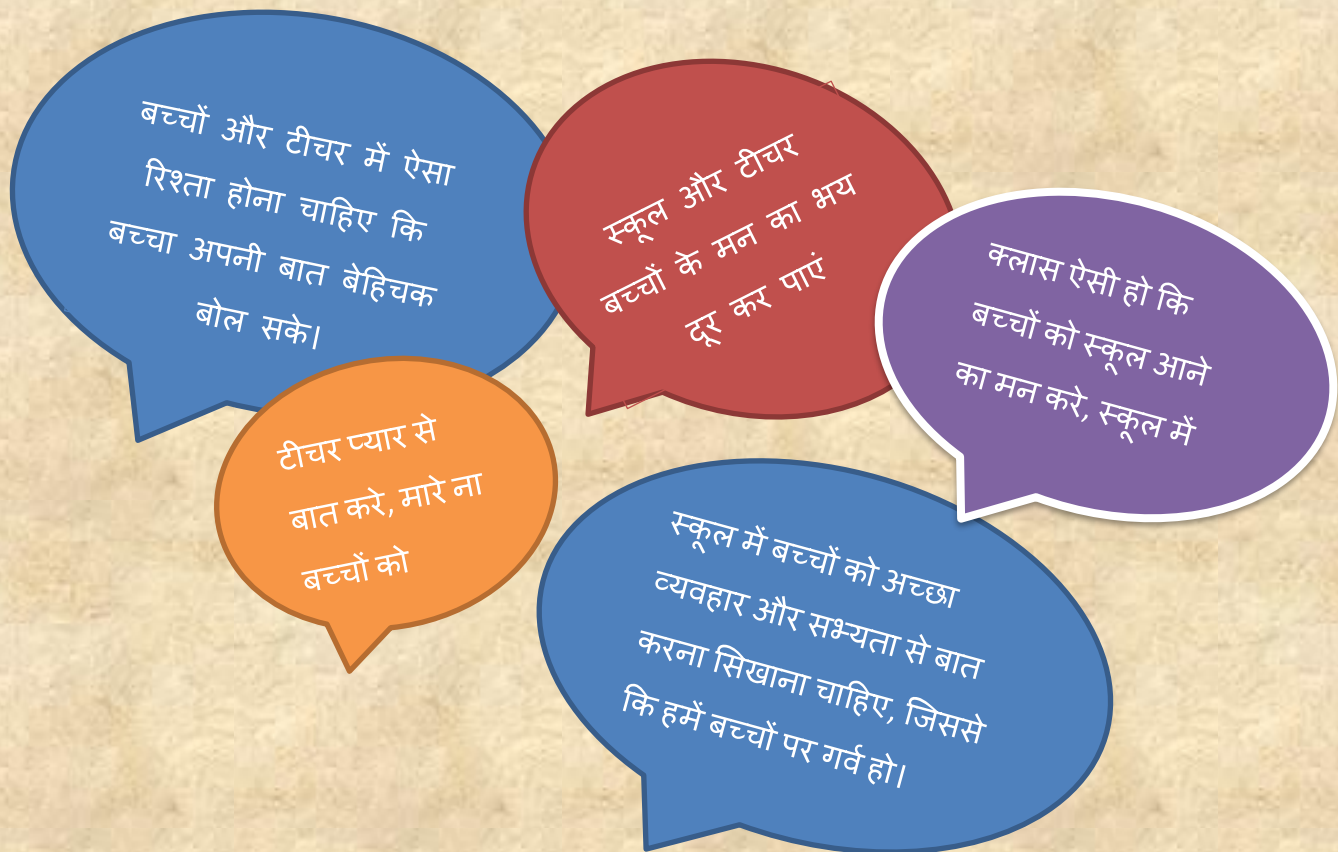 बच्चों और टीचर में ऐसा
रिश्ता होना चाहिए कि
बच्चा अपनी बात बेहिचक
बोल सके।
स्कूल और टीचर
बच्चों के मन का भय
दूर कर पाएं
क्लास ऐसी हो कि
बच्चों को स्कूल आने
का मन करे, स्कूल में
टीचर प्यार से
बात करे, मारे ना
बच्चों को
स्कूल में बच्चों को अच्छा
व्यवहार और सभ्यता से बात
करना सिखाना चाहिए, जिससे
कि हमें बच्चों पर गर्व हो।